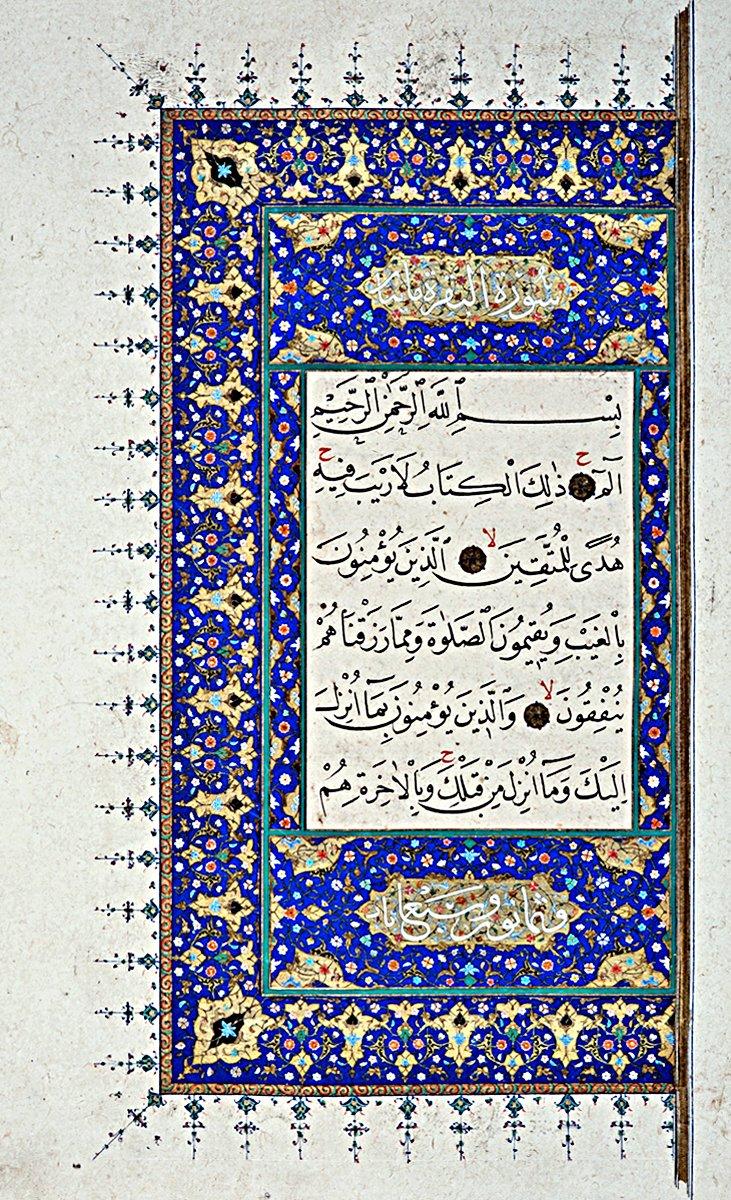 سورة البقرة مايتان
بِسْمِ ٱللَّهِ ٱلرَّحْمٰنِ ٱلرَّحِيمِ
الٓمٓ ح ذٰلِكَ الْكِتَابُ لَا رَيْبَ فِيهِ ح
هُدًى لِلْمُتَّقِينَ لا ٱلَّذِينَ يُؤْمِنُونَ
بِالْغَيْبِ وَيُقِيمُونَ ٱلصَّلٰوةَ وَمِمَّا رَزَقْنَاهُمْ
يُنْفِقُونَ لا وَٱلَّذِينَ يُؤْمِنُونَ بِمَٓا اُنْزِلَ
اِلَيْكَ وَمَٓا اُنْزِلَ مِنْ قَبْلِكَ ح وَبِالْاٰخِرَةِ هُمْ
وثمانون وسبع ايات